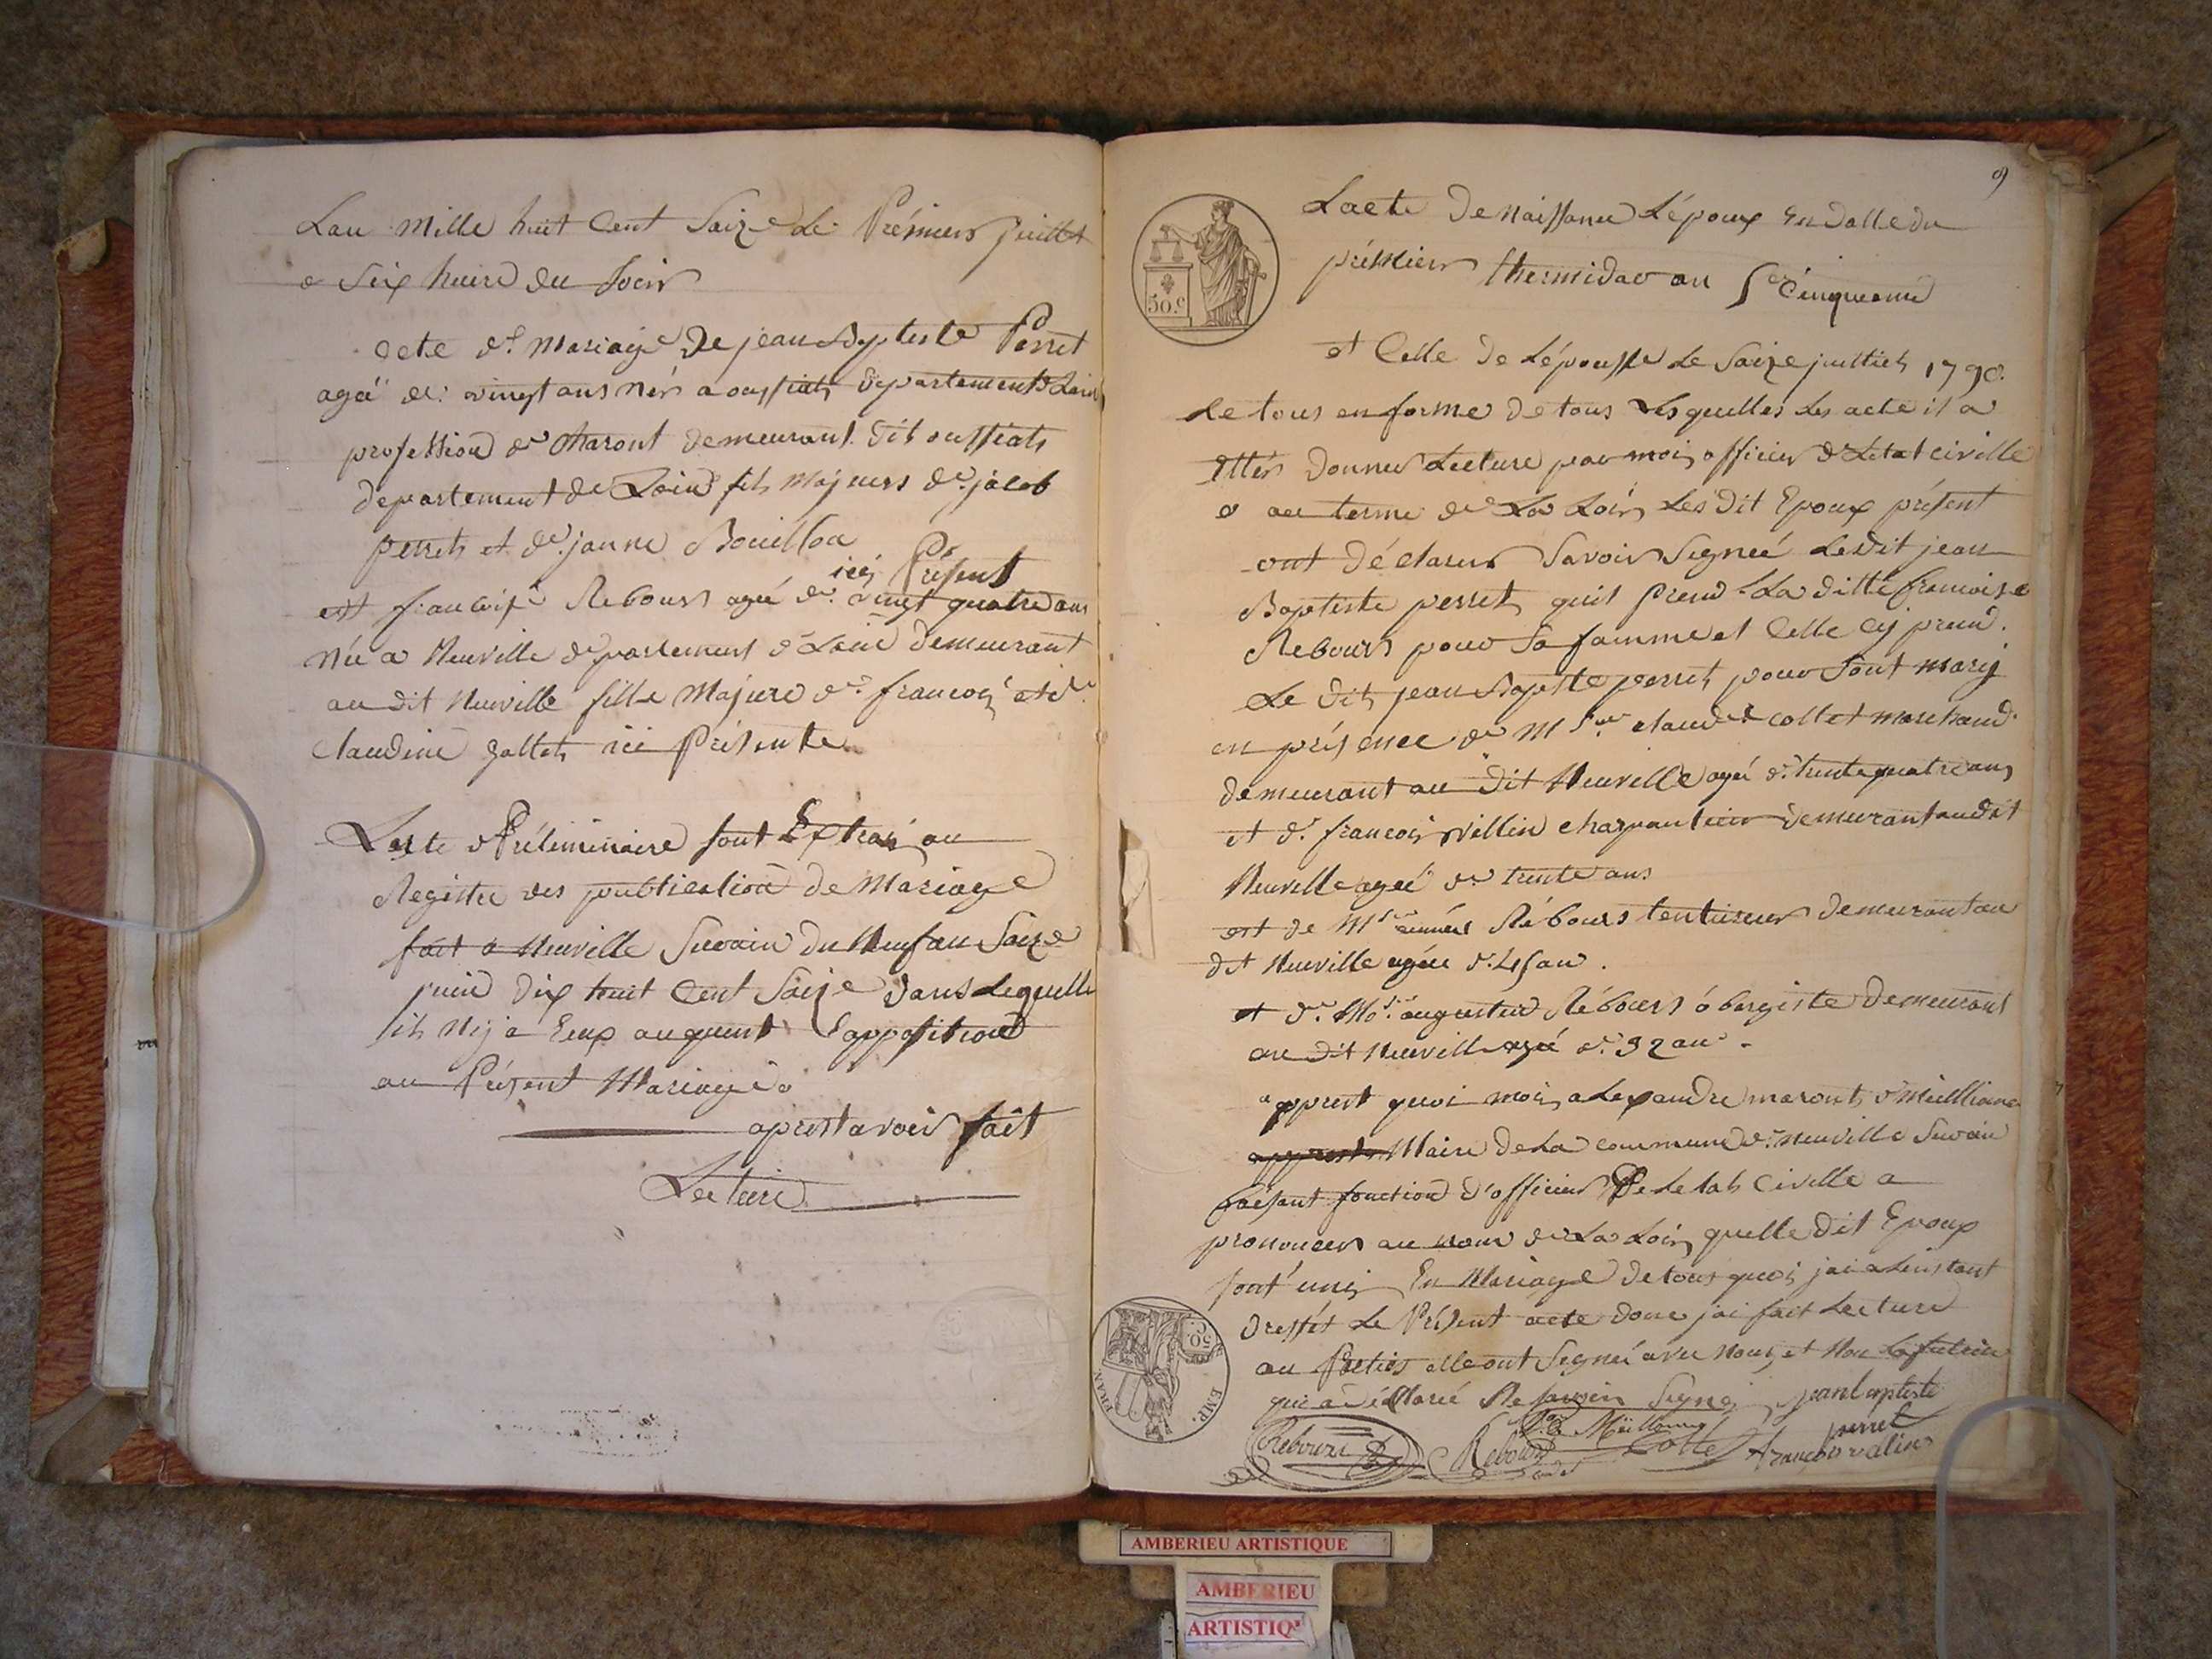 Lan mille huit Cent Saize Le Prémiers juillet
a Six heure du Soir
acte de Mariage De jean Baptiste Perret
ageé de vingt ans Nér a oussiats departement de Lain
profession de Charont demeurant dit oussiats
departement de Lain fils Majeurs de jacob
perret et de janne Bouillon
icii Présent
est francoise Rebours ageé de vingt quatre ans
Née a Neuville departement de Lain demeurant
au dit Neuville fille Majure de francois et de
Claudine gallet ici Présente
Lacte Préliminaire sont Extrai au
Registre des publication de Mariage
fait a Neuville Surain du Neuf au Saize
juin dix huit Cent Saize dans Lequelle
il Nij a Eux aucunt opposition
au Présent Mariage
aprest avoir fait
Lecture
9
50.c
Lacte de Naissance Lépoux En datte du
prémiers thermidor an 5 cinquieme
et Celle de Lépousse Le Saize juilliet 1790.
Le tous en forme de tous Lesquelles Les acte il a
ettér donner Lecture par moi officier de Letat civille
a au terme de La Loir Les dit Epoux présent
ont déclarer Savoir Signeé Le dit jean
Baptiste perret quil prend La ditte francoise
Rebours pour Sa famme et Celle Cij prend
Le dit jean Bapste perret pour Sont marij
en présence de M Sieur claude collet marchand
demeurant au dit Neuville ageé de trente quatre ans
et de francois villin charpantier demeurant audit
Neuville ageé de trente ans
est de Mr Rébours tentureur demeurant au
dit Neuville ageé de 45 an.
et de Mo. augustin Rébours obergiste demeurant
au dit Neuville ageé de 32 an
apprest quoi moi alexandre maront de Meilliona
Maire de La commune de Neuville Surain
faisant fonction d'officier De Letat Civille a
prononcer au nom de La Loir quelle dit Epoux
sont unij En Mariage de tous quoi jai a Linstant
dressét Le Présent acte donc jai fait Lecture
au Parties elle ont Signeé avec Nous et Non La future
qui a déclareé Ne Savoir Signe jean baptiste
perret
Rebours Rebours Meillonna Collet francois valin
50 c.
EMP. FRAN
AMBERIEU ARTISTIQUE
AMBERIEU
ARTISTIQ